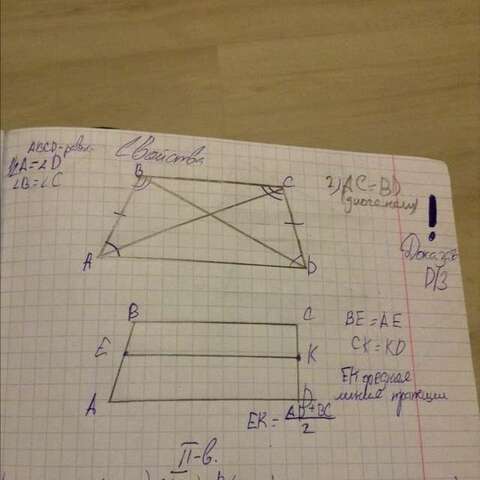 ABCD-равн.
Свойства
1) ∠A=∠D
∠B=∠C
B
C
2) AC=BD
(диагонали)
!
A
D
Доказать
D/З
B
C
BE=AE
E
K
CK=KD
EK средняя
линия трапеции
A
D
EK = AD+BC
2
II-в.